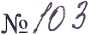 № 103